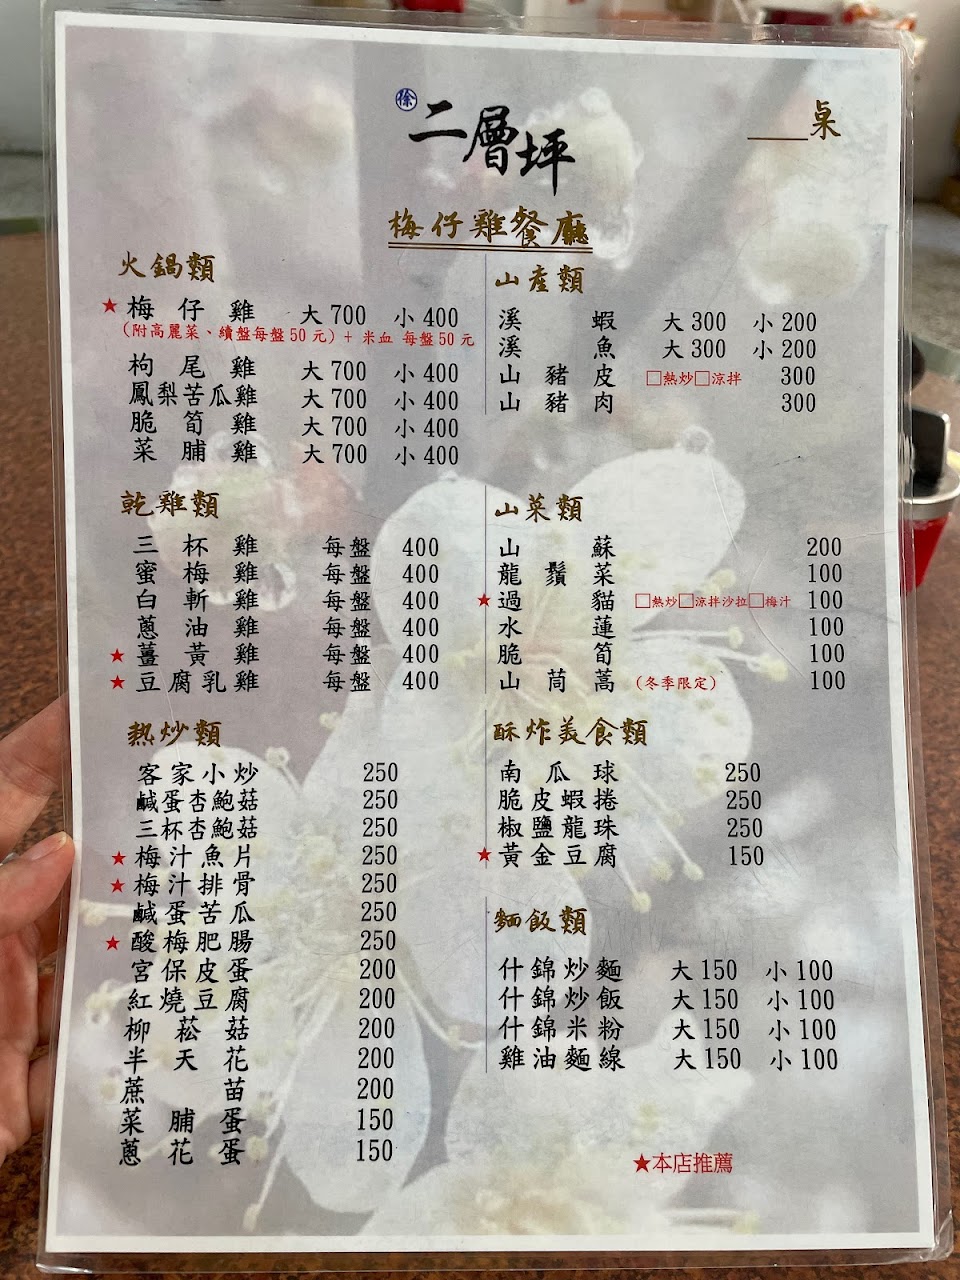 徐 二層坪
___桌
梅仔雞餐廳
火鍋類
★梅仔雞 大700 小400
(附高麗菜、續盤每盤50元)+米血 每盤50元
枸尾雞 大700 小400
鳳梨苦瓜雞 大700 小400
脆筍雞 大700 小400
菜脯雞 大700 小400
乾雞類
三杯雞 每盤 400
蜜梅雞 每盤 400
白斬雞 每盤 400
蔥油雞 每盤 400
★薑黃雞 每盤 400
★豆腐乳雞 每盤 400
熱炒類
客家小炒 250
鹹蛋杏鮑菇 250
三杯杏鮑菇 250
★梅汁魚片 250
★梅汁排骨 250
鹹蛋苦瓜 250
★酸梅肥腸 250
宮保皮蛋 200
紅燒豆腐 200
柳菘菇 200
半天花 200
蔗苗 200
菜脯蛋 150
蔥花蛋 150
山產類
溪蝦 大300 小200
溪魚 大300 小200
山豬皮 □熱炒□涼拌 300
山豬肉 300
山菜類
山蘇 200
龍鬚菜 100
★過貓 □熱炒□涼拌沙拉□梅汁 100
水蓮 100
脆筍 100
山茼蒿 (冬季限定) 100
酥炸美食類
南瓜球 250
脆皮蝦捲 250
椒鹽龍珠 250
★黃金豆腐 150
麵飯類
什錦炒麵 大150 小100
什錦炒飯 大150 小100
什錦米粉 大150 小100
雞油麵線 大150 小100
★本店推薦